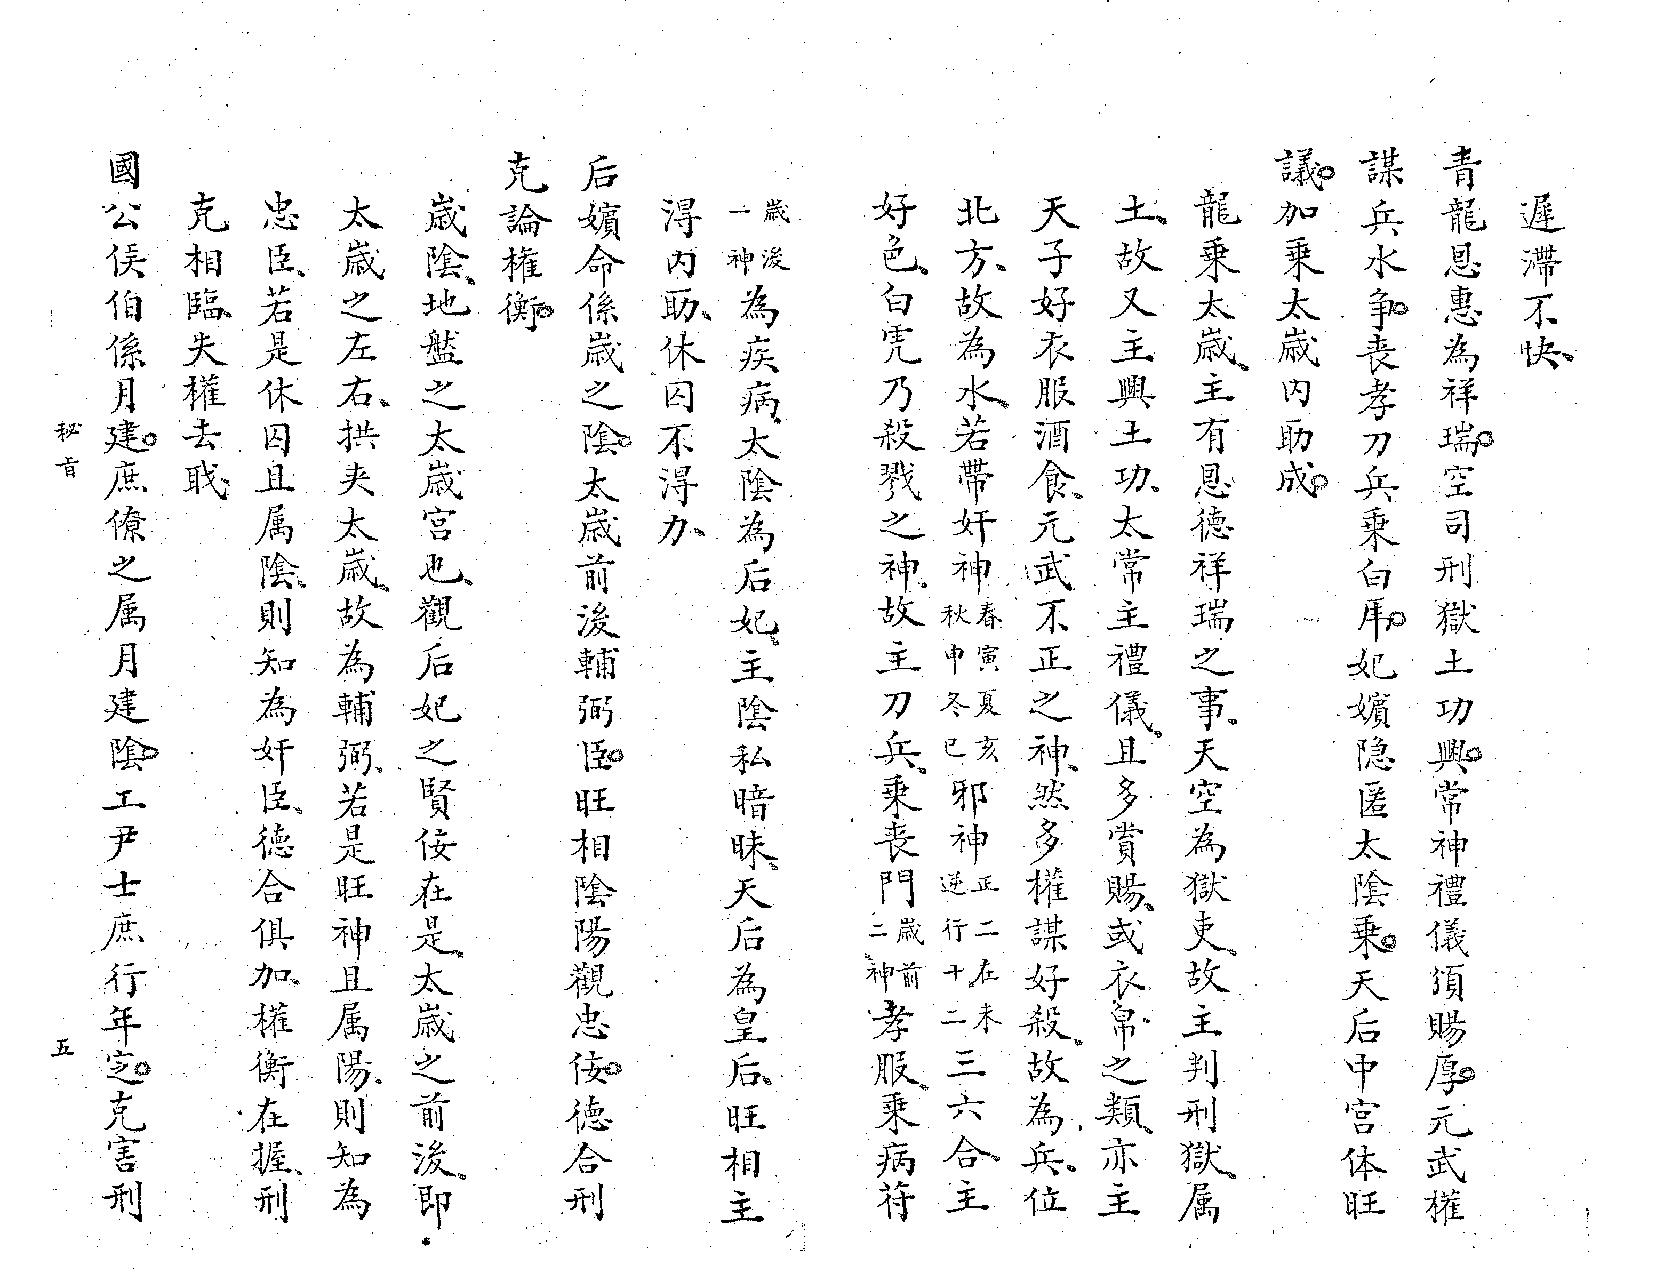 遲滯不快、
青龍恩惠為祥瑞。空司刑獄土功興。常神禮儀須賜厚。元武權
謀兵水爭。喪孝刀兵乘白虎。妃嬪隐匿太陰乘。天后中宫体旺
議。加乘太歲内助成。
龍乘太歲、主有恩德祥瑞之事。天空為獄吏、故主判刑獄、属
土、故又主興土功、太常主禮儀、且多賞賜、或衣帛之類、亦主
天子好衣服酒食、元武不正之神、然多權謀好殺、故為兵、位
北方、故為水、若帶奸神春寅夏亥秋申冬巳邪神正二在未逆行十二三六合主
好色、白虎乃殺戮之神、故主刀兵、乘喪門歲前二神孝服、乘病符
歲後一神為疾病、太陰為后妃、主陰私暗昧、天后為皇后、旺相主
淂内助、休囚不淂力、
后嬪命係歲之陰。太歲前後輔弼臣。旺相陰陽觀忠佞。德合刑
克論權衡。
歲陰、地盤之太歲宮也、觀后妃之賢佞在是、太歲之前後、即
太歲之左右、拱夹太歲、故為輔弼、若是旺神且属陽、則知為
忠臣、若是休囚且属陰、則知為奸臣、德合俱加、權衡在握、刑
克相臨、失權去職、
國公侯伯係月建。庶僚之属月建陰。工尹士庶行年定。克害刑
秘旨
五